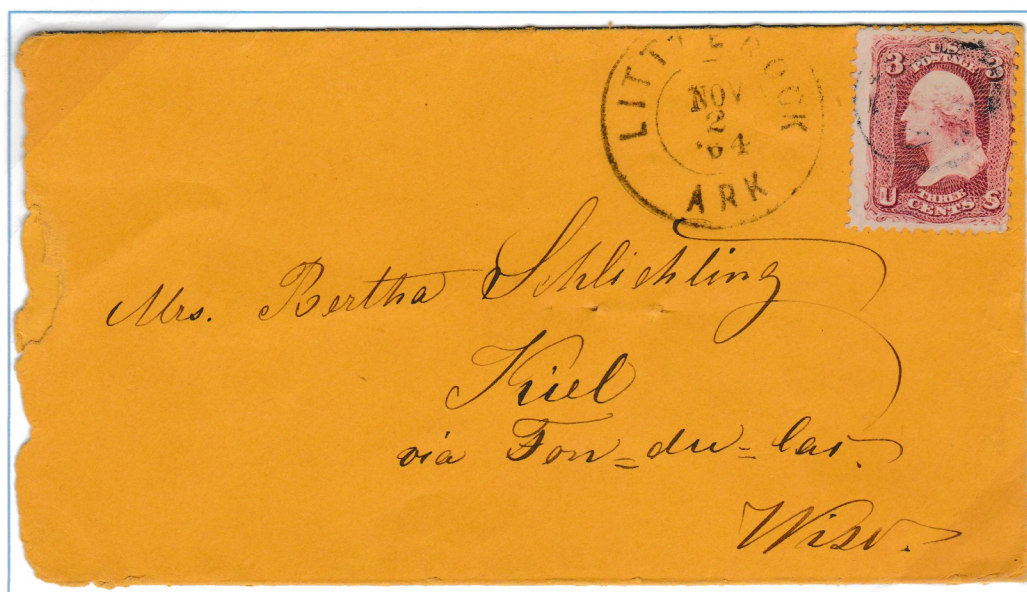 LITTLE ROCK
NOV
2
'64
ARK
U.S.
POSTAGE
3 3
THREE
CENTS
U S
Mrs. Bertha Schlichting
Kiel
via Fon=du=lac.
Wisc.